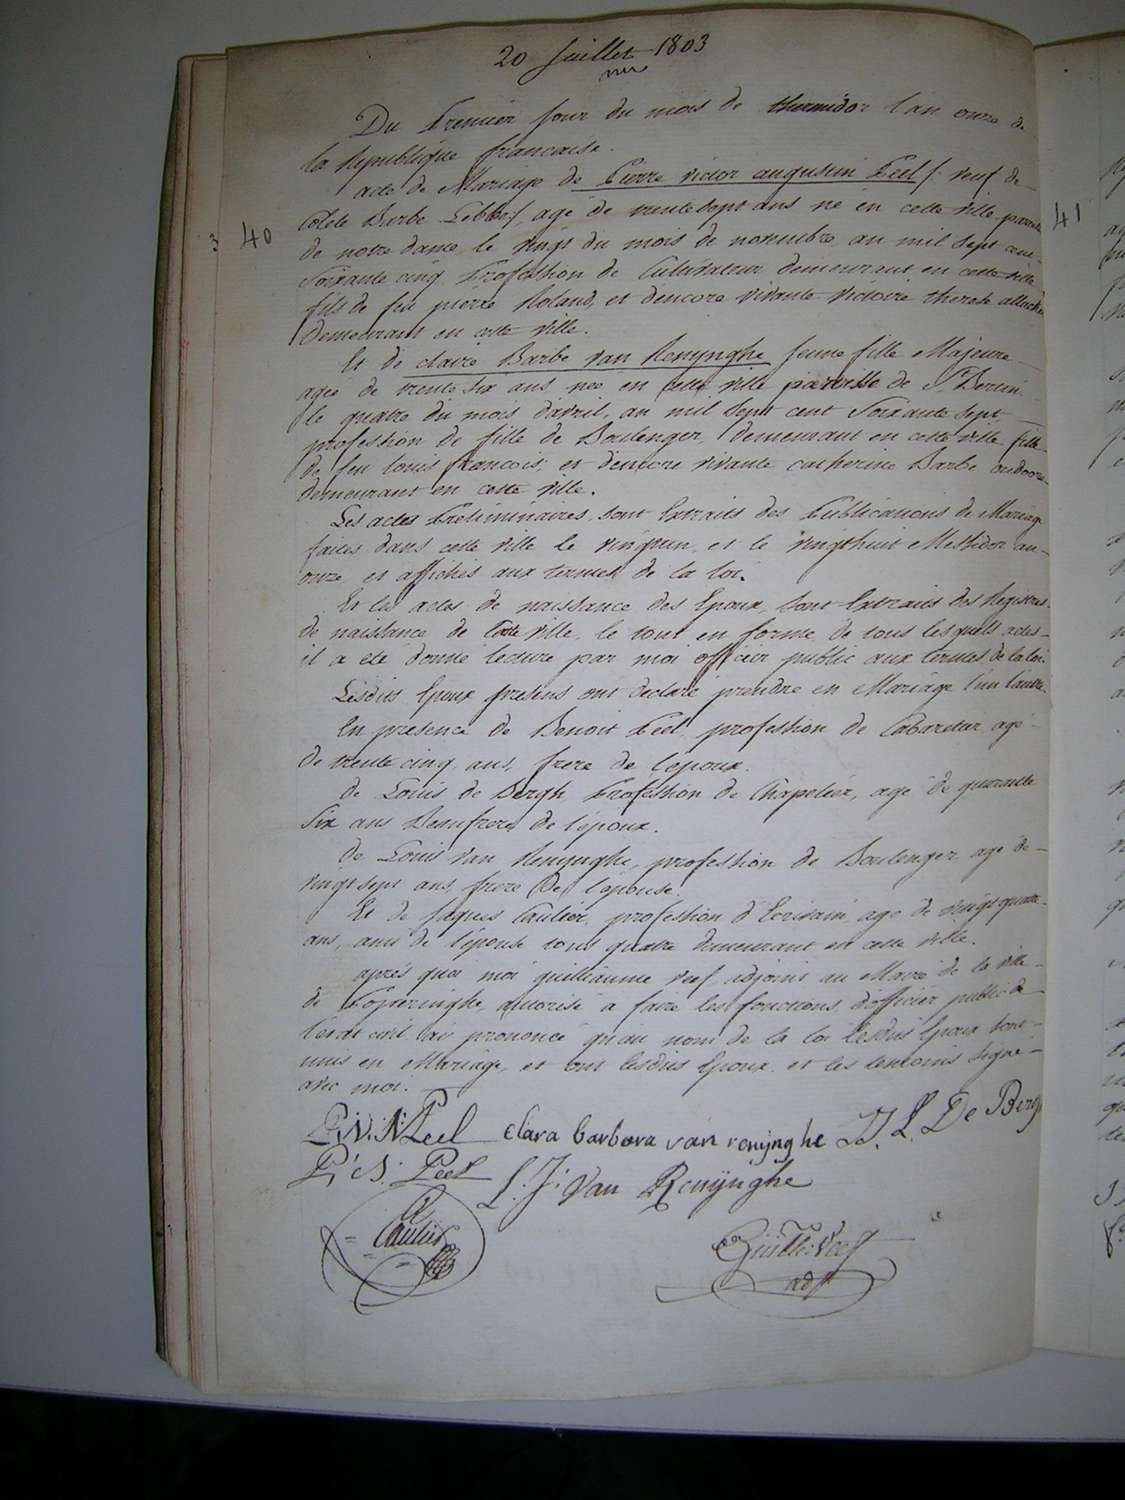 20 Juillet 1803
Du Premier jour du mois de thermidor l'an onze de
la Republique francaise.
acte de Mariage de Pierre victor augustin Peel /: veuf de
Colete Barbe Lebbe :/ agé de trente sept ans né en cette ville paroisse
40 de notre dame le vingt du mois de novembre an mil sept cent 41
Soixante cinq Profession de Cultivateur demeurant en cette ville
fils de feu pierre Roland, et d'encore vivante victoire therese
demeurant en cette ville.
Et de claire Barbe van Renynghe jeune fille Majeure
agée de trente six ans née en cette ville paroisse de St Bertin
le quatre du mois d'avril, an mil Sept cent Soixante sept
profession de fille de Boulenger, demeurant en cette ville fille
de feu louis francois, et d'encore vivante catherine Barbe
demeurant en cette ville.
Les actes Preliminaires sont Extraits des Publications de Mariage
faites dans cette ville le vingtun et le vingthuit Messidor an
onze et affichés aux termes de la loi.
Et les actes de naissance des Epoux, sont Extraits des Registres
de naissance de cette ville, le tout en forme, de tous lesquells actes
il a eté donné lecture par moi officier public aux termes de la loi.
Lesdits Epoux presens ont declaré prendre en Mariage l'un l'autre.
En presence de Benoit Peel, profession de Cabaretier, agé
de trente cinq ans, frere de l'epoux.
de Louis de Bergh, Profession de Chapelier, agé de quarante
Six ans Beaufrere de l'époux.
de Louis van Renynghe, profession de Boulenger agé de
vingt sept ans, frere de l'épouse.
Et de Jaques Caulier, profession d'Ecrivain, agé de vingt quatre
ans, ami de l'épouse tous quatre demeurant en cette ville.
aprés quoi moi guilliaume veef, adjoint au Maire de la ville
de Poperinghe, autorisé à faire les fonctions d'officier public de
l'etat civil ai prononcé qu'au nom de la loi lesdits Epoux sont
unis en Mariage, et ont lesdits Epoux et les temoins signé
avec moi.
P. V. A. Peel clara barbara van renynghe J. L. De Bergh
P. B. Peel L. J. Van Renynghe
Caulier Guill: Veef
adjt